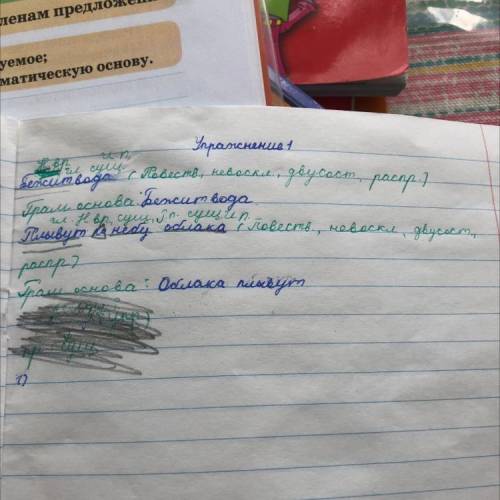 ленам предложен
уемое;
матическую основу.
Упражнение 1
Н.вр. и.п.
гл. сущ.
Бежит вода (Повеств, невоскл, двусост, распр.)
Грам основа: Бежит вода
гл. Н.вр, сущ. п. сущ и.п.
Плывут по небу облака (Повеств, невоскл, двусост,
распр)
Грам основа: Облака плывут